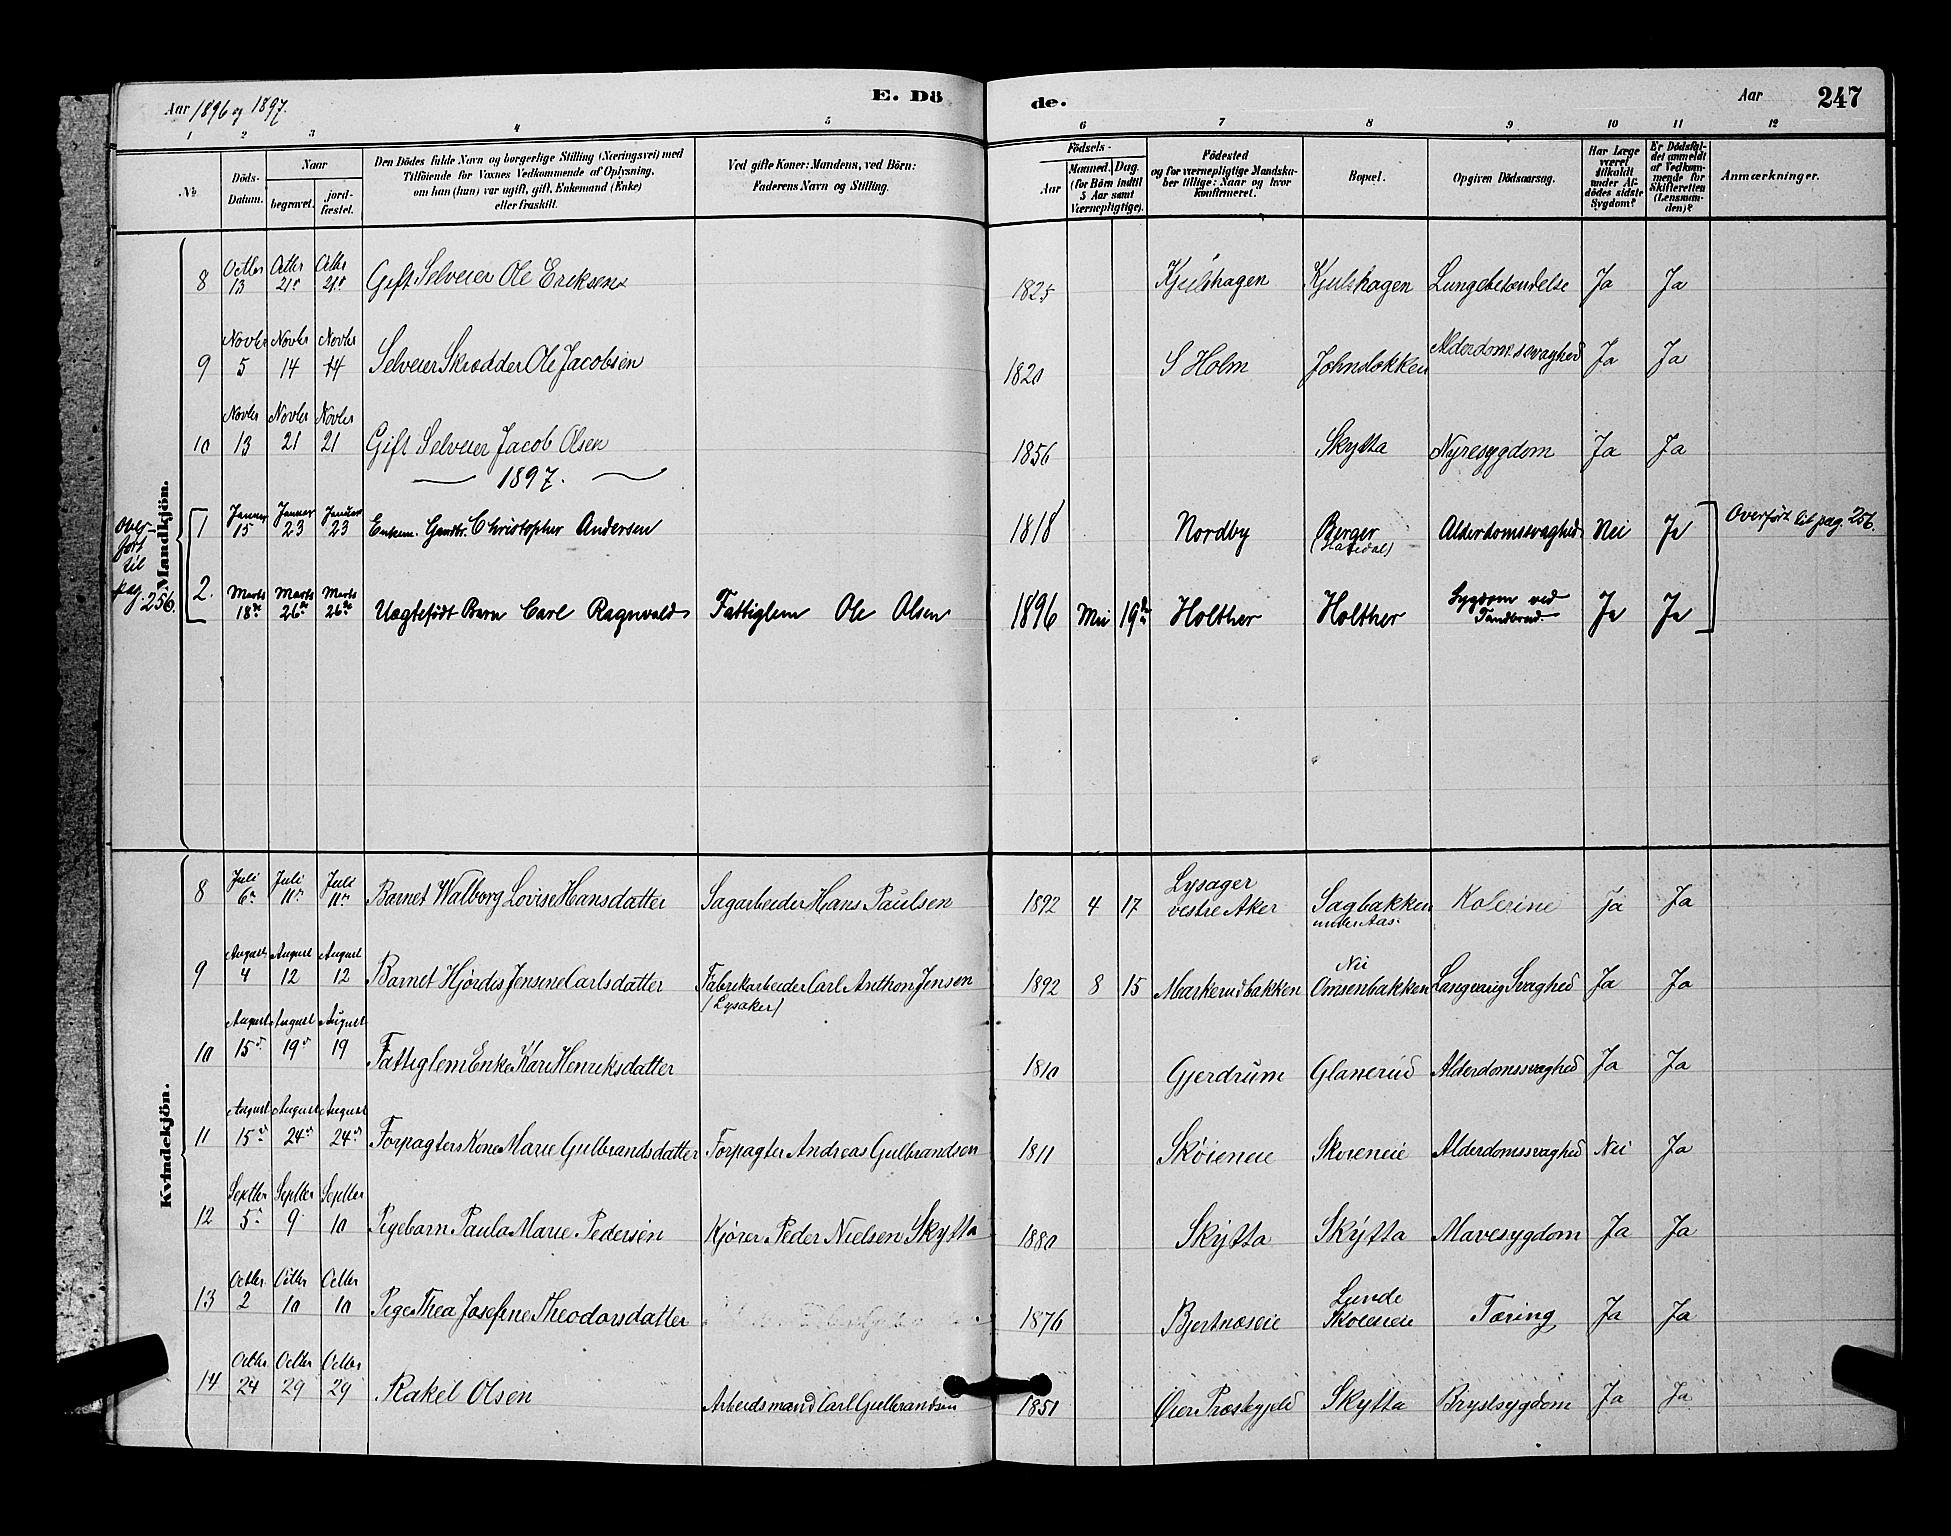 Aar 1896 og 1897.
E. Dö
de.
Aar
247
1 2 3 4 5 6 7 8 9 10 11 12
No
Döds-Datum.
Naar
begravet.
jord-fæstet.
Den Dödes fulde Navn og borgerlige Stilling (Næringsvei) med
Tilföiende for Voxnes Vedkommende af Oplysning,
om han (hun) var ugift, gift, Enkemand (Enke)
eller fraskilt.
Ved gifte Koner: Mandens, ved Börn:
Faderens Navn og Stilling.
Födsels-
Aar
Maaned. Dag.
(for Börn indtil
5 Aar samt
Værnepligtige).
Födested
og for værnepligtige Mandska-
ber tillige: Naar og hvor
konfirmeret.
Bopæl.
Opgiven Dödsaarsag.
Har Læge
været
tilkaldt
under Af-
dödes sidste
Sygdom?
Er Dödsfal-
det anmeldt
af Vedkom-
mende for
Skifteretten
(Lensman-
den)?
Anmærkninger.
Mandkjön.
8 Octbr 13 Octbr 21 Octbr 21 Gift Selveier Ole Eriksen 1825 Kjulshagen Kjulshagen Lungebetændelse Ja Ja
9 Novbr 5 Novbr 14 Novbr 14 Selveier Skrædder Ole Jacobsen 1820 S Holm Johnsløkken Alderdomssvaghed Ja Ja
10 Novbr 13 Novbr 21 Novbr 21 Gift Selveier Jacob Olsen 1856 Skytta Nyresygdom Ja Ja
1897.
Over-
ført
til
pag. 256.
1 Januar 15 Januar 23 Januar 23 Enkem. Gaardbr. Christopher Andersen 1818 Nordby Berger Alderdomssvaghed Nei Ja Overført til pag. 256.
2. Marts 18de Marts 26de Marts 26de Uægtefödt Barn Carl Ragnvald Fattiglem Ole Olsen 1896 Mai 19de Holther Holther Sygdom ved Tandbrud. Ja Ja
Kvindekjön.
8 Juli 6 Juli 11 Juli 11 Barnet Walborg Lovise Hansdatter Sagarbeider Hans Paulsen 1892 4 17 Lysager vestre Aker Sagbakken under Aas Kolerine Ja Ja
9 August 4 August 12 August 12 Barnet Hjørdis Jensine Carlsdatter Fabrikarbeider Carl Anthon Jensen (Lysaker) 1892 8 15 Markerudbakken Langvarig Svaghed Ja Ja
10 August 15 August 19 August 19 Fattiglem Enke Kari Henriksdatter 1810 Gjerdrum Glanerud Alderdomssvaghed Ja Ja
11 August 15 August 24 August 24 Forpagters Kone Marie Gulbrandsdatter Forpagter Andreas Gulbrandsen 1811 Skøieneie Skøieneie Alderdomssvaghed Nei Ja
12 Septbr 5 Septbr 9 Septbr 10 Pigebarn Paula Marie Pedersen Kjører Peder Nielsen Skytta 1880 Skytta Skytta Mavesygdom Ja Ja
13 Octbr 2 Octbr 10 Octbr 10 Pige Thea Josefine Theodorsdatter 1876 Bjertnæseie Lunde Skøieneie Tæring Ja Ja
14 Octbr 24 Octbr 29 Octbr 29 Rakel Olsen Arbeidsmand Carl Gulbrandsen 1851 Øier Præstegjeld Skytta Brystsygdom Ja Ja